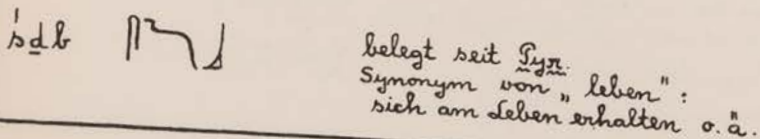 śdb 𓋴𓂧𓃀 belegt seit Pyr.
Synonym von „leben":
sich am Leben erhalten o. ä.